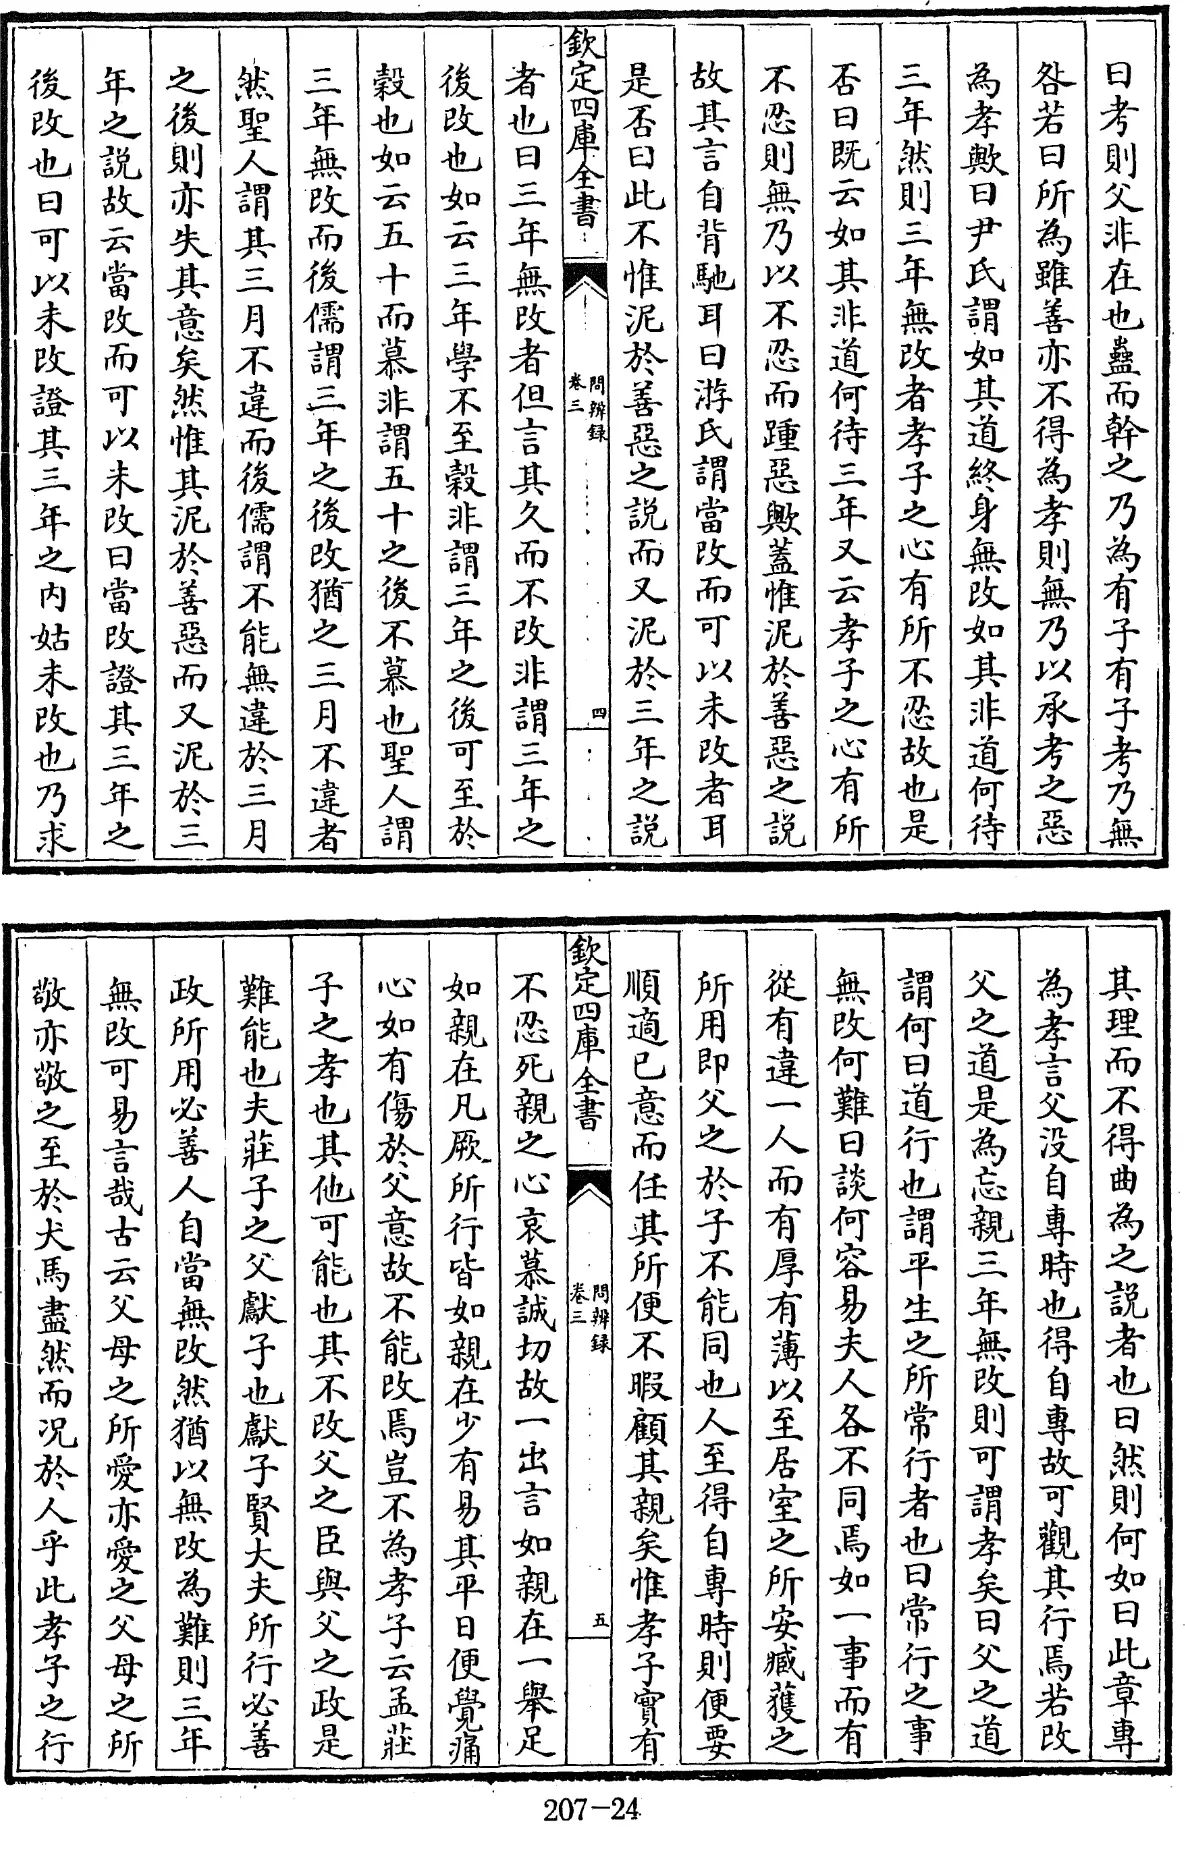 曰考則父非在也蠱而幹之乃為有子有子考乃無
咎若曰所為雖善亦不得為孝則無乃以承考之惡
為孝歟曰尹氏謂如其道終身無改如其非道何待
三年然則三年無改者孝子之心有所不忍故也是
否曰既云如其非道何待三年又云孝子之心有所
不忍則無乃以不忍而踵惡歟蓋惟泥於善惡之説
故其言自背馳耳曰游氏謂當改而可以未改者耳
是否曰此不惟泥於善惡之説而又泥於三年之説
欽定四庫全書
問辨録
卷三
四
者也曰三年無改者但言其久而不改非謂三年之
後改也如云三年學不至榖非謂三年之後可至於
榖也如云五十而慕非謂五十之後不慕也聖人謂
三年無改而後儒謂三年之後改猶之三月不違者
然聖人謂其三月不違而後儒謂不能無違於三月
之後則亦失其意矣然惟其泥於善惡而又泥於三
年之説故云當改而可以未改曰當改證其三年之
後改也曰可以未改證其三年之内姑未改也乃求
其理而不得曲為之説者也曰然則何如曰此章專
為孝言父没自專時也得自專故可觀其行焉若改
父之道是為忘親三年無改則可謂孝矣曰父之道
謂何曰道行也謂平生之所常行者也曰常行之事
無改何難曰談何容易夫人各不同焉如一事而有
從有違一人而有厚有薄以至居室之所安臧獲之
所用即父之於子不能同也人至得自專時則便要
順適已意而任其所便不暇顧其親矣惟孝子實有
欽定四庫全書
問辨録
卷三
五
不忍死親之心哀慕誠切故一出言如親在一舉足
如親在凡厥所行皆如親在少有易其平日便覺痛
心如有傷於父意故不能改焉豈不為孝子云孟莊
子之孝也其他可能也其不改父之臣與父之政是
難能也夫莊子之父獻子也獻子賢大夫所行必善
政所用必善人自當無改然猶以無改為難則三年
無改可易言哉古云父母之所愛亦愛之父母之所
敬亦敬之至於犬馬盡然而况於人乎此孝子之行
207-24